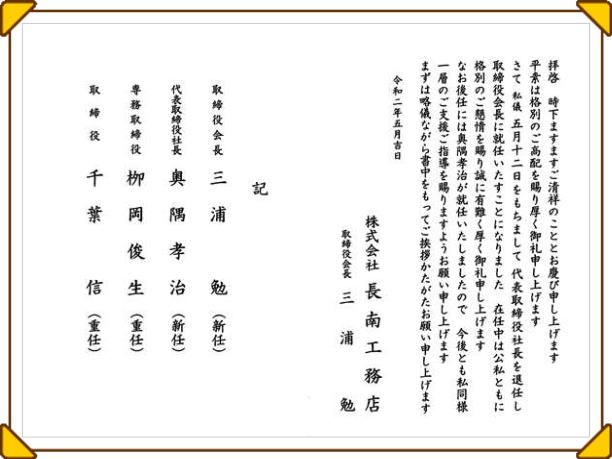 拝啓　時下ますますご清祥のこととお慶び申し上げます
平素は格別のご高配を賜り厚く御礼申し上げます
さて 私儀 五月十二日をもちまして 代表取締役社長を退任し
取締役会長に就任いたすことになりました　在任中は公私ともに
格別のご懇情を賜り誠に有難く厚く御礼申し上げます
なお後任には奥隅孝治が就任いたしましたので　今後とも私同様
一層のご支援ご指導を賜りますようお願い申し上げます
まずは略儀ながら書中をもってご挨拶かたがたお願い申し上げます
令和二年五月吉日
株式会社 長南工務店
取締役会長 三浦 勉
記
取締役会長 三浦 勉（新任）
代表取締役社長 奥隅孝治（新任）
専務取締役 柳岡俊生（重任）
取締役 千葉 信（重任）